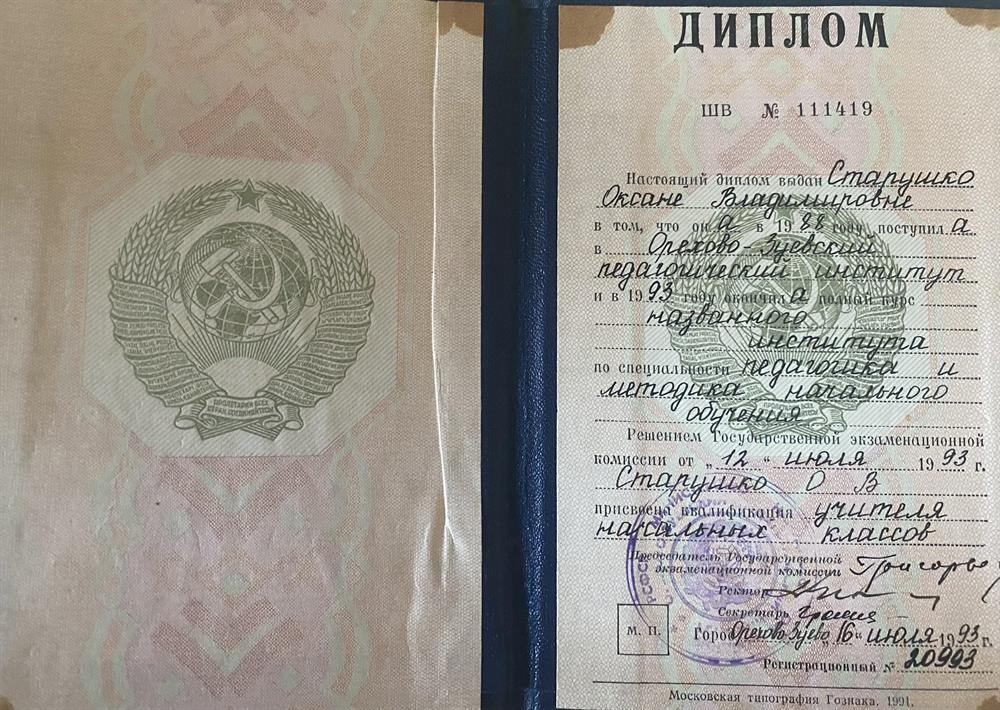 ПРОЛЕТАРИИ ВСЕХ
СТРАН, СОЕДИНЯЙТЕСЬ!
ДИПЛОМ
ШВ № 111419
Настоящий диплом выдан Старушко
Оксане Владимировне
в том, что он а в 19 88 году поступил а
в Орехово-Зуевский
педагогический институт
и в 19 93 году окончил а полный курс
названного
института
по специальности педагогика и
методика начального
обучения
Решением Государственной экзаменационной
комиссии от „ 12 “ июля 19 93 г.
Старушко О В
присвоена квалификация учителя
начальных классов
Председатель Государственной
экзаменационной комиссии
Ректор
Секретарь
М. П.
Город Орехово-Зуево „ 16 “ июля 19 93 г.
Регистрационный № 20993
Московская типография Гознака. 1991.
РСФСР